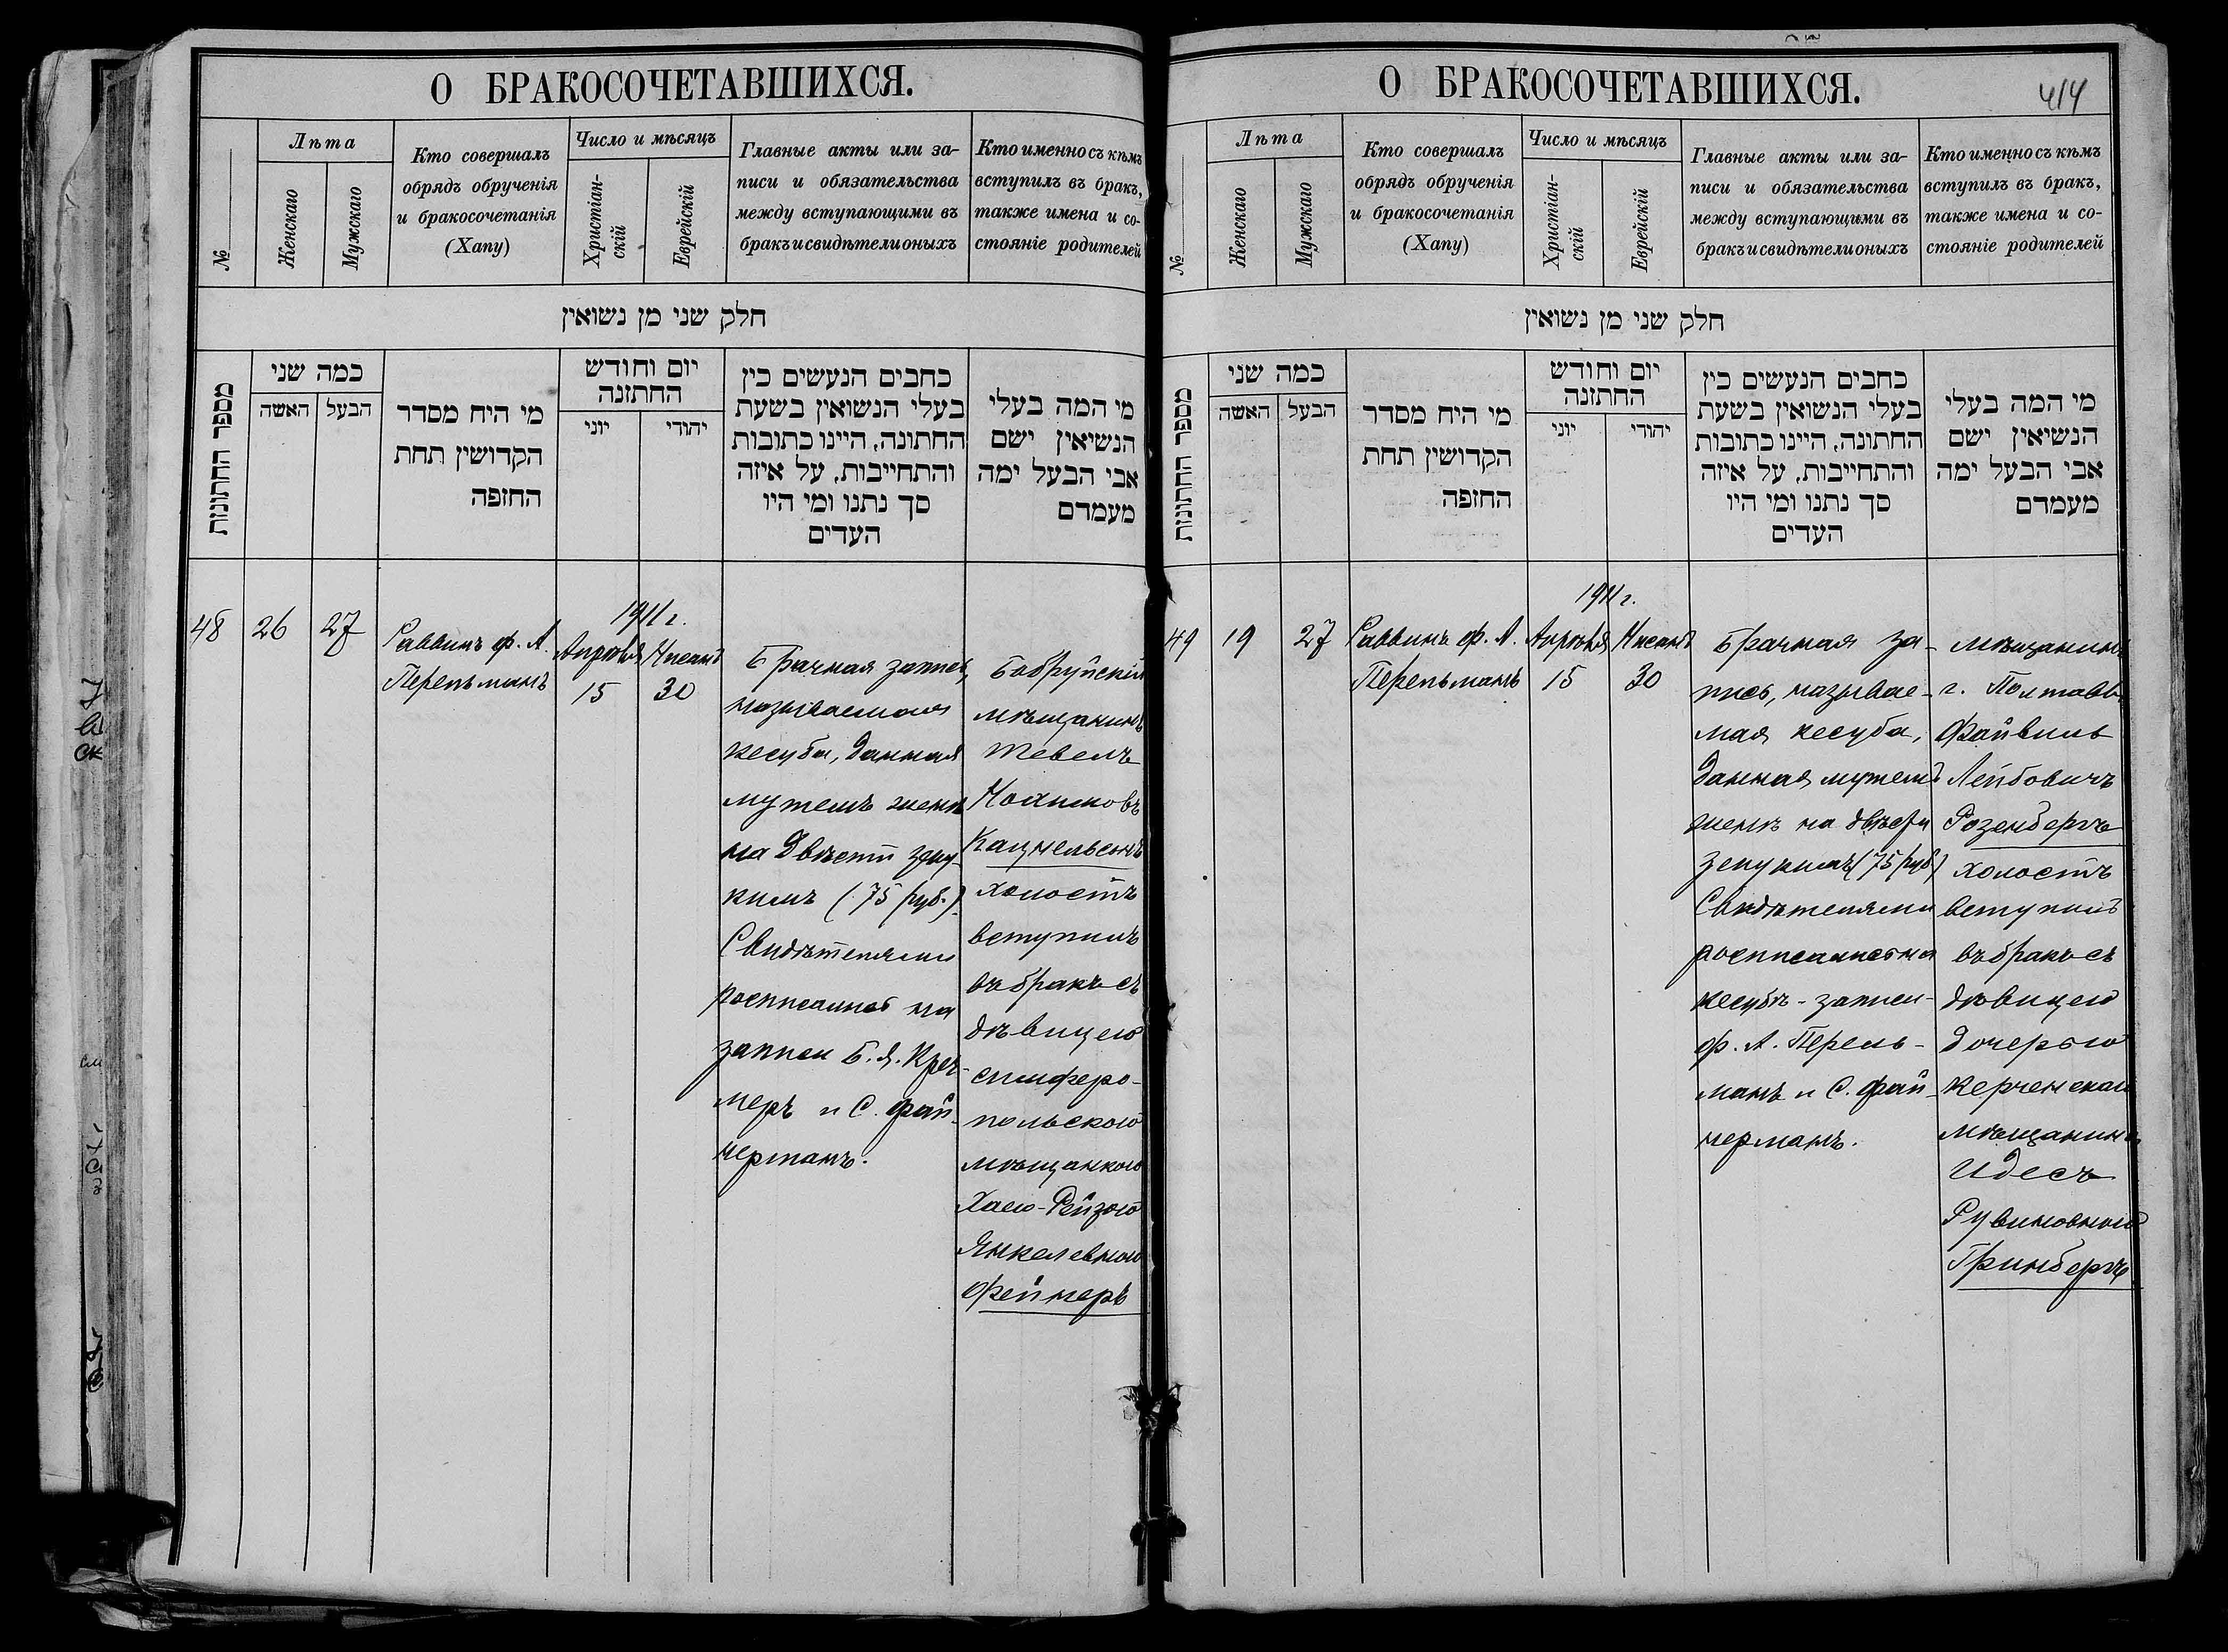 О БРАКОСОЧЕТАВШИХСЯ.
№
Лѣта
Женскаго
Мужскаго
Кто совершалъ
обрядъ обрученія
и бракосочетанія
(Хапу)
Число и мѣсяцъ
Христіан-
скій
Еврейскій
Главные акты или за-
писи и обязательства
между вступающими въ
бракъ и свидѣтели оныхъ
Кто именно съ кѣмъ
вступилъ въ бракъ,
также имена и со-
стояніе родителей
חלק שני מן נשואין
מספר החתונות
כמה שני
האשה
הבעל
מי היח מסדר
הקדושין תחת
החופה
יום וחודש
החתונה
יוני
יהודי
כחבים הנעשים כין
בעלי הנשואין בשעת
החתונה, היינו כתובות
והתחייבות, על איזה
סך נתנו ומי היו
העדים
מי המה בעלי
הנשיאין ישם
אבי הבעל ימה
מעמדם
48
26
27
Раввинъ Ф. А.
Перельманъ
1911 г.
Апрѣля
15
Нисанъ
30
Брачная запись,
называемая
кесуба, данная
мужемъ женѣ
на двѣсти зеку-
кимъ (75 руб.)
Свидѣтелями
росписались на
записи Б. Я. Кре-
меръ и С. Фай-
нерманъ.
Бобруйскій
мѣщанинъ
Тевелъ
Ноахимовъ
Кацнельсонъ
холостъ
вступилъ
въ бракъ съ
дѣвицею
симферо-
польскою
мѣщанкою
Хаею-Рейзою
Янкелевною
Фейнеръ
О БРАКОСОЧЕТАВШИХСЯ.
414
№
Лѣта
Женскаго
Мужскаго
Кто совершалъ
обрядъ обрученія
и бракосочетанія
(Хапу)
Число и мѣсяцъ
Христіан-
скій
Еврейскій
Главные акты или за-
писи и обязательства
между вступающими въ
бракъ и свидѣтели оныхъ
Кто именно съ кѣмъ
вступилъ въ бракъ,
также имена и со-
стояніе родителей
חלק שני מן נשואין
מספר החתונות
כמה שני
האשה
הבעל
מי היח מסדר
הקדושין תחת
החופה
יום וחודש
החתונה
יוני
יהודי
כחבים הנעשים כין
בעלי הנשואין בשעת
החתונה, היינו כתובות
והתחייבות, על איזה
סך נתנו ומי היו
העדים
מי המה בעלי
הנשיאין ישם
אבי הבעל ימה
מעמדם
49
19
27
Раввинъ Ф. А.
Перельманъ
1911 г.
Апрѣля
15
Нисанъ
30
Брачная за-
пись, называе-
мая кесуба,
данная мужемъ
женѣ на двѣсти
зекукимъ (75 руб.)
Свидѣтелями
росписались на
кесубѣ-записи
Ф. А. Перель-
манъ и С. Фай-
нерманъ.
мѣщанинъ
г. Полтавы
Файвиль
Лейбовичъ
Розенбергъ
холостъ
вступилъ
въ бракъ съ
дѣвицею
дочерью
керченскаго
мѣщанина
Идесъ
Рувиновною
Гринбергъ